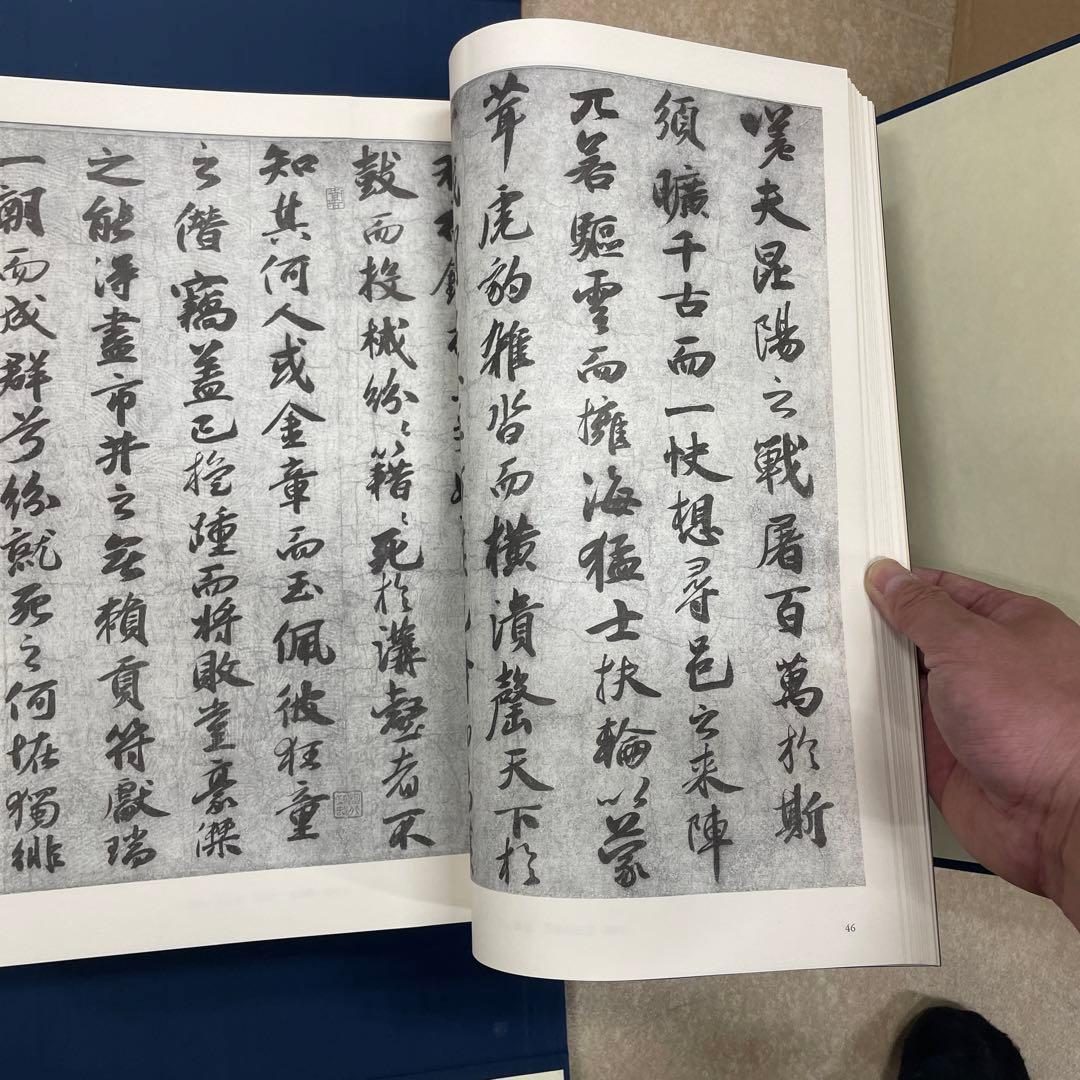 嗟夫昆陽之戰屠百萬於斯
須曠千古而一快想尋邑之来陣
兀若驅雲而擁海猛士扶輪以蒙
茸虎豹雜沓而橫潰罄天下於
鼓而投械紛〻籍〻死於溝壑者不
知其何人或金章而玉佩彼狂童
之僭竊蓋已旋踵而將敗豈豪傑
之能得盡市井之無賴貢符獻瑞
一朝而成群兮紛就死之何怪獨
46